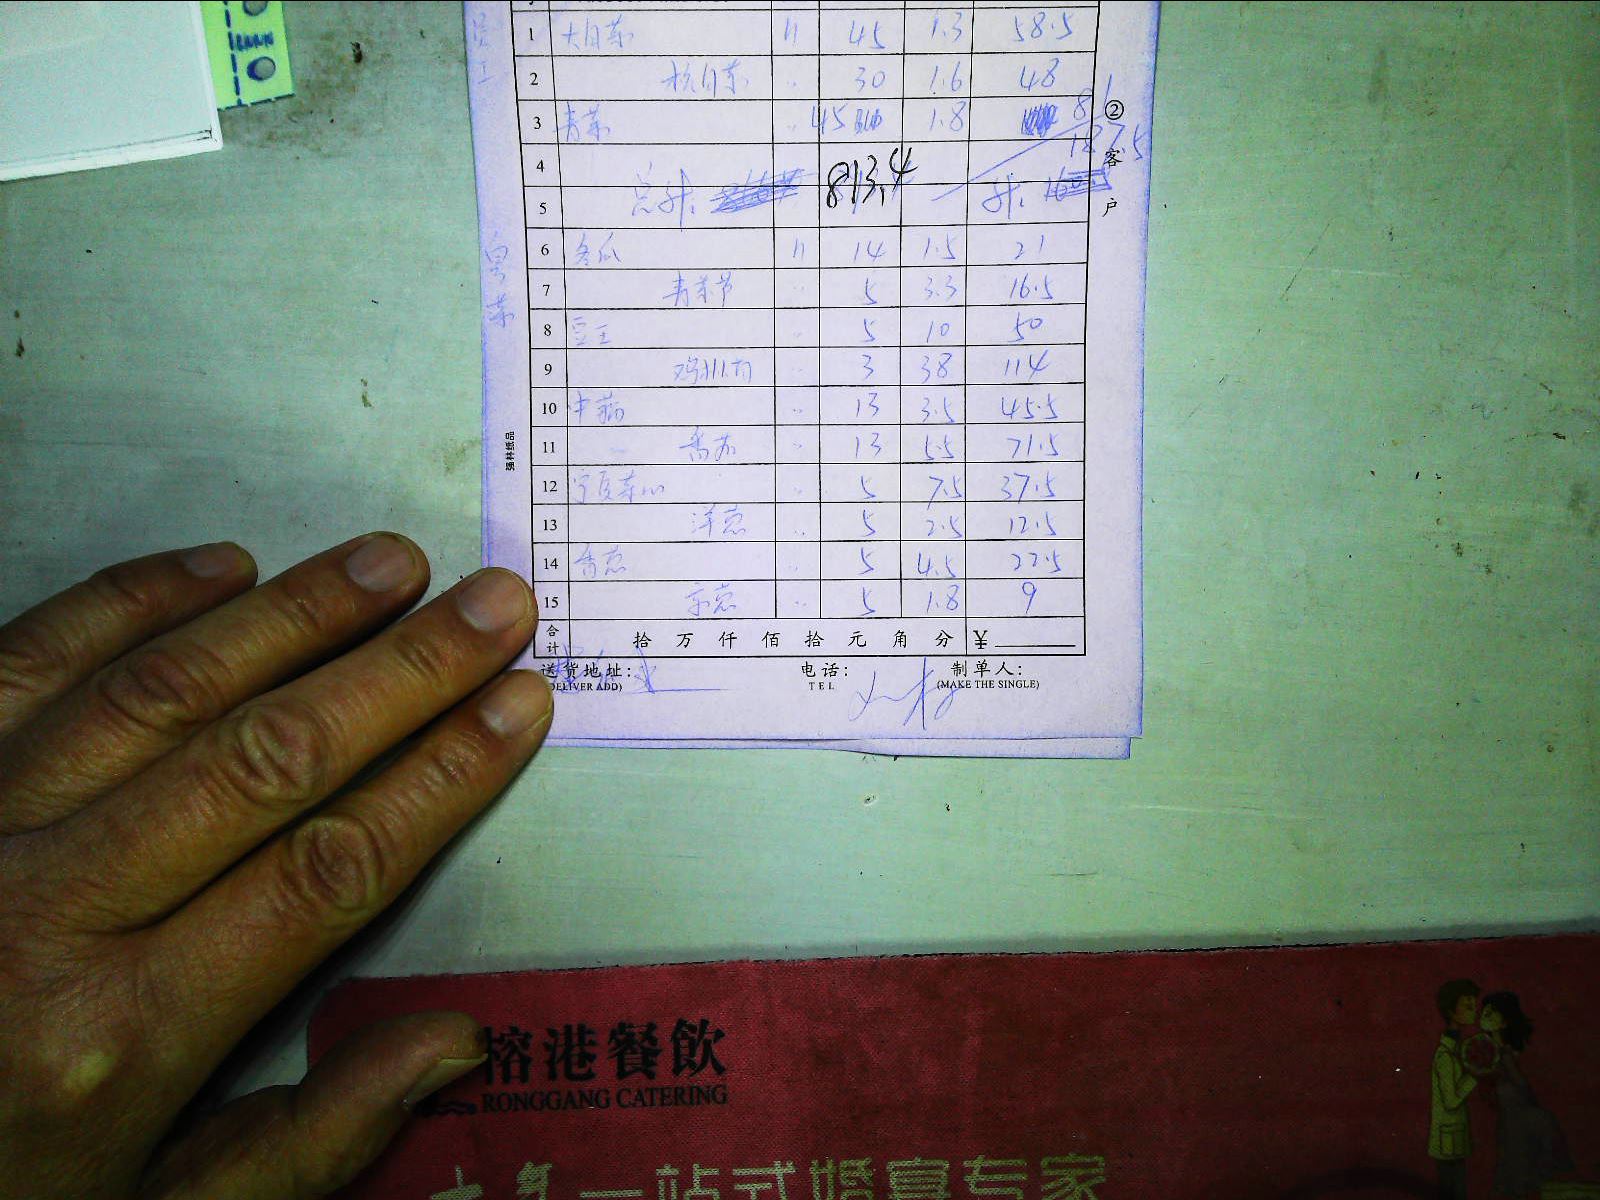 员工
1 大白菜 〃 45 1.3 58.5
2 杭白菜 〃 30 1.6 48
3 青菜 〃 45 1.8 81
4 187.5
5 总计: 813.4 计:
白菜
6 冬瓜 〃 14 1.5 21
7 青菜节 〃 5 3.3 16.5
8 豆王 〃 5 10 50
9 〃 3 38 114
10 〃 13 3.5 45.5
11 香 〃 13 5.5 71.5
12 宁夏菜心 〃 5 7.5 37.5
13 洋葱 〃 5 2.5 12.5
14 香葱 〃 5 4.5 22.5
15 京葱 〃 5 1.8 9
合计 拾 万 仟 佰 拾 元 角 分 ¥
送货地址: 电话: 制单人:
DELIVER ADD) TEL (MAKE THE SINGLE)
② 客户
强林纸品
榕港餐飲
RONGGANG CATERING
一站式婚宴专家